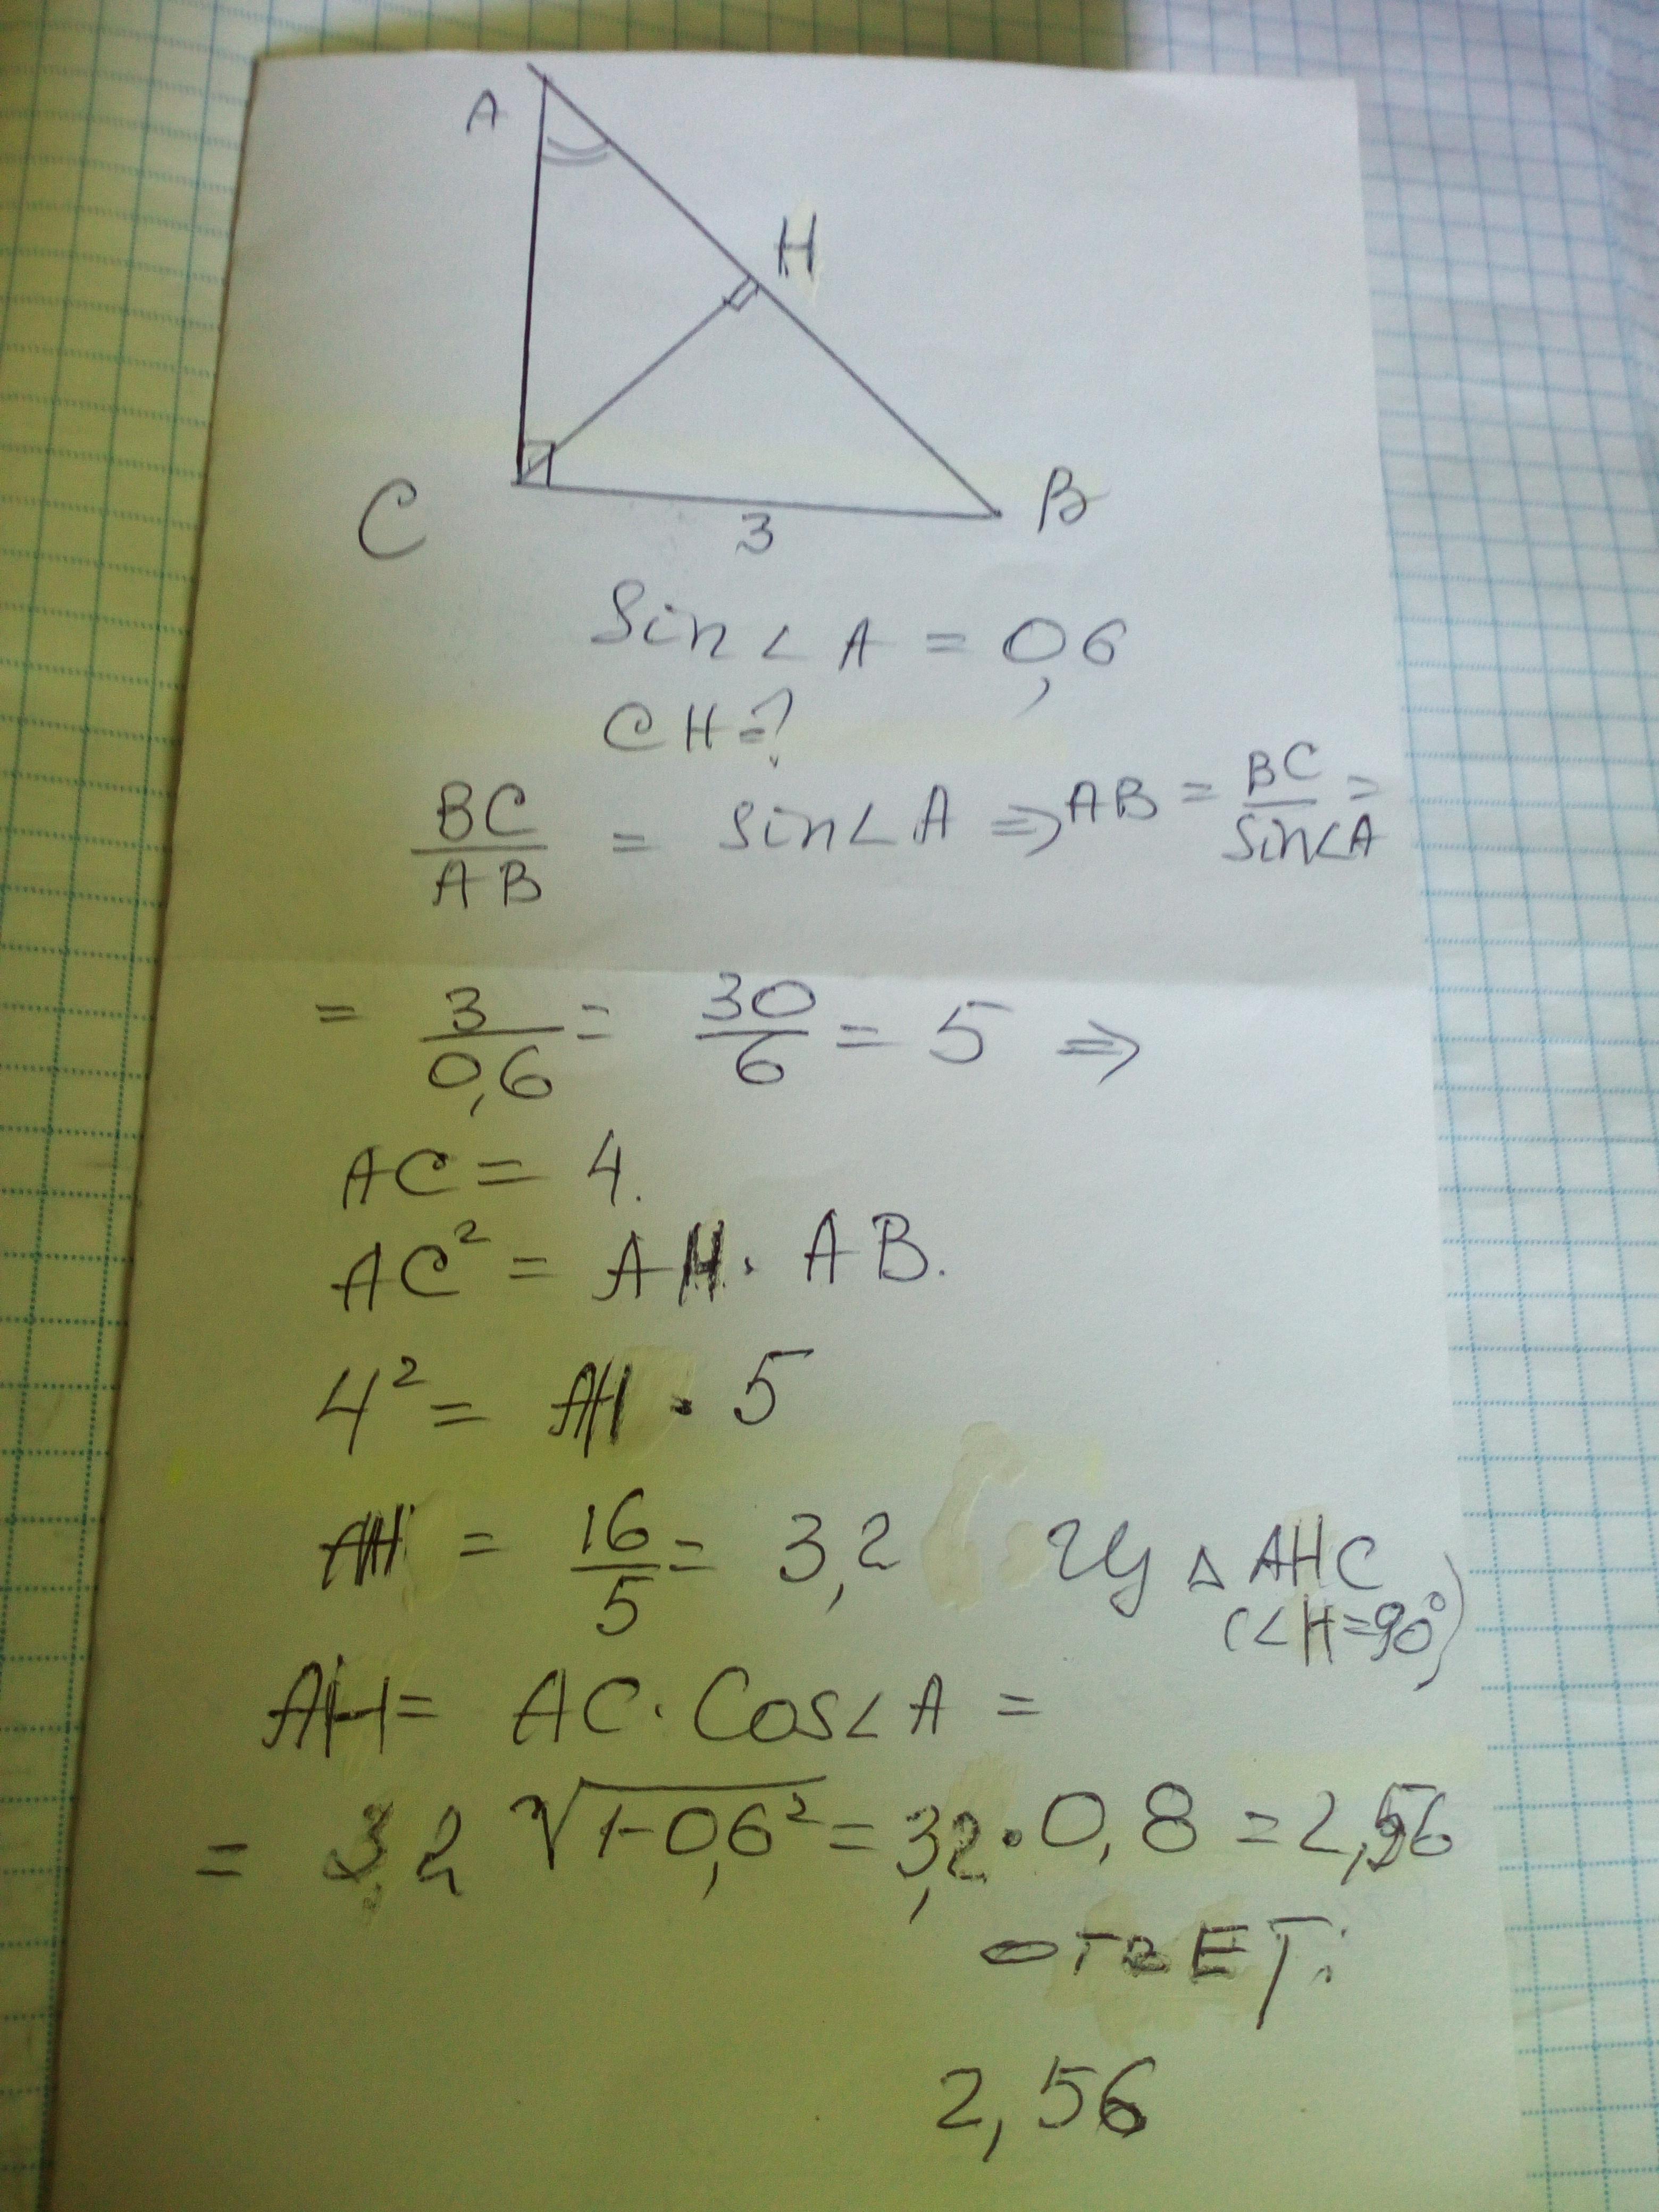 A
H
C
B
3
Sin∠A = 0,6
CH=?
BC/AB = sin∠A ⇒ AB = BC/Sin∠A =
= 3/0,6 = 30/6 = 5 ⇒
AC = 4.
AC² = AH · AB.
4² = AH · 5
AH = 16/5 = 3,2 Из △ AHC
(∠H=90°)
AH = AC · Cos∠A =
= 3,2 √1-0,6² = 3,2 · 0,8 = 2,56
ответ:
2,56